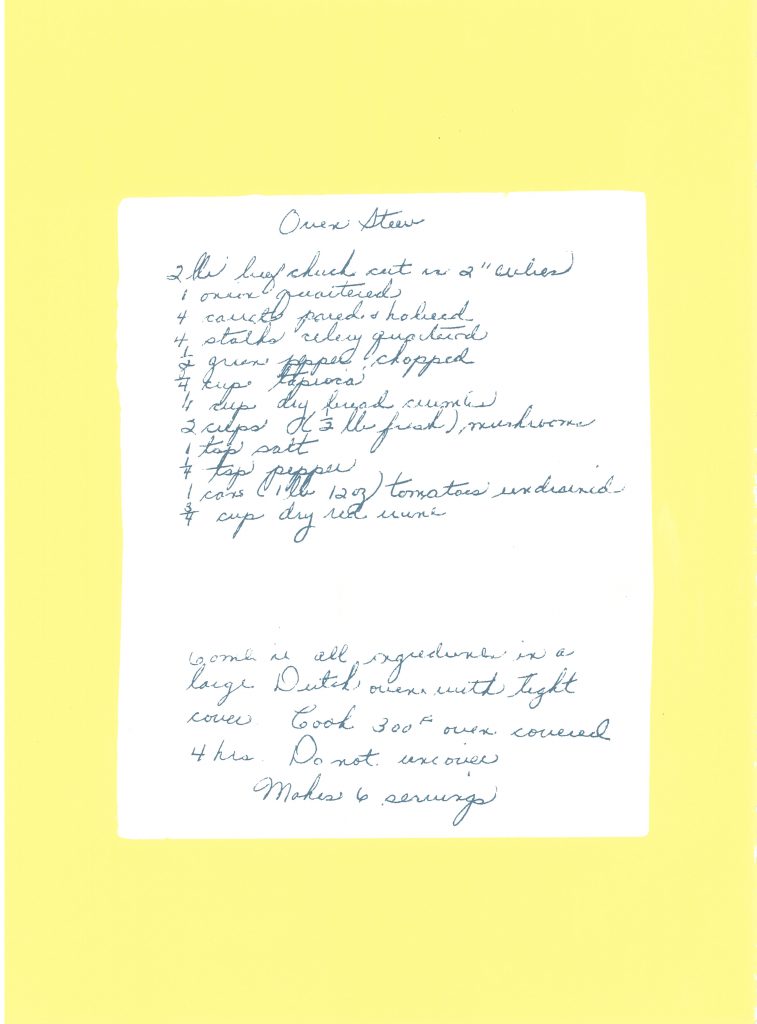 Oven Stew
2 lbs beef chuck cut in 2" cubes
1 onion quartered
4 carrots pared & halved
4 stalks celery quartered
1/2 green pepper chopped
cup tapioca
cup dry bread crumbs
2 cups (1/2 lb fresh) mushrooms
1 tsp salt
1/4 tsp pepper
1 can (1 lb 12 oz) tomatoes undrained
3/4 cup dry red wine
Combine all ingredients in a
large Dutch oven with tight
cover Cook 300° oven covered
4 hrs. Do not uncover
Makes 6 servings